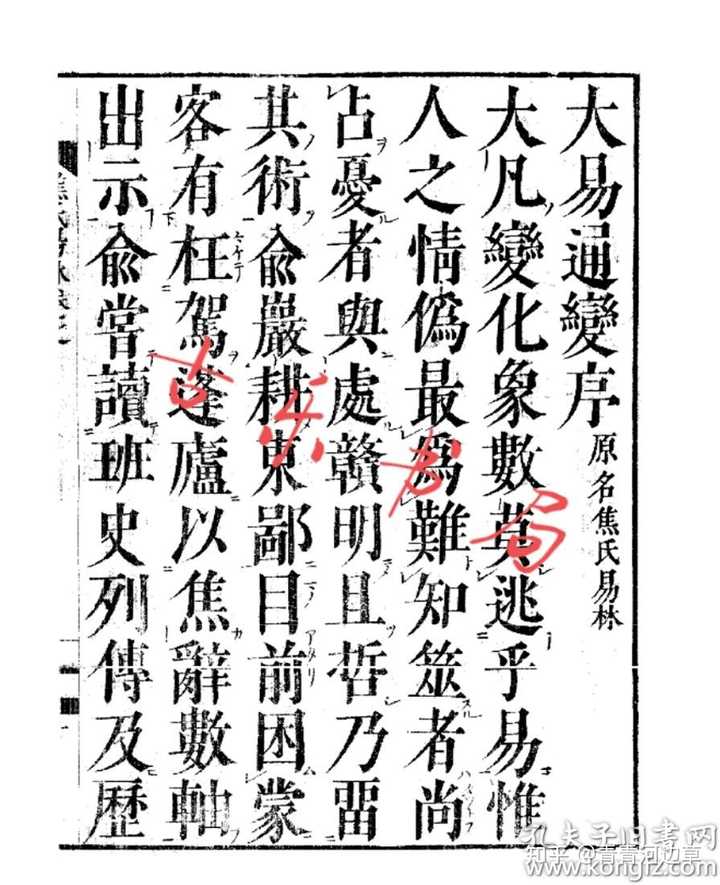 大易通變序 原名焦氏易林
大凡變化象數莫逃乎易惟
人之情僞最爲難知筮者尚
占憂者與處贛明且哲乃畱
其術兪巖耕東鄙目前困蒙
客有枉駕蓬廬以焦辭數軸
出示兪嘗讀班史列傳及歷
孔夫子旧书网
知乎 @青青河边草
www.kongfz.com